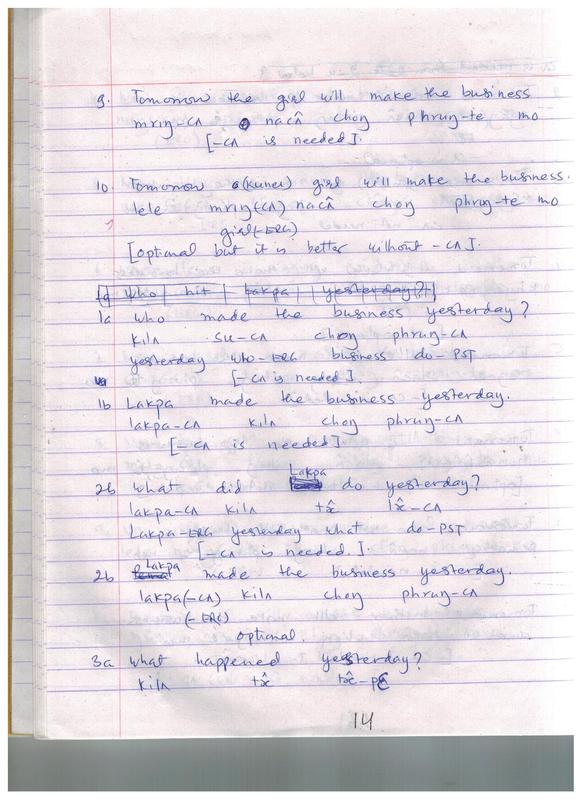 9. Tomorrow the girl will make the business
mrıŋ-cʌ nacʌ̂ choŋ phruŋ-te mo
[-cʌ is needed].
10 Tomorrow a (kuner) girl will make the business.
lele mrıŋ(-cʌ) nacʌ̂ choŋ phruŋ-te mo
girl(-ERG)
[optional but it is better without -cʌ].
1a who hit Lakpa yesterday?
1a who made the business yesterday?
kilʌ su-cʌ choŋ phruŋ-cʌ
yesterday who-ERG business do-PST
[-cʌ is needed].
1b Lakpa made the business yesterday.
lakpa-cʌ kilʌ choŋ phruŋ-cʌ
[-cʌ is needed]
2b what did Lakpa do yesterday?
lakpa-cʌ kilʌ
Lakpa-ERG yesterday what do-PST
[-cʌ is needed.].
2b Lakpa made the business yesterday.
lakpa(-cʌ) kilʌ choŋ phruŋ-cʌ
(-ERG)
optional.
3a what happened yesterday?
kilʌ
14